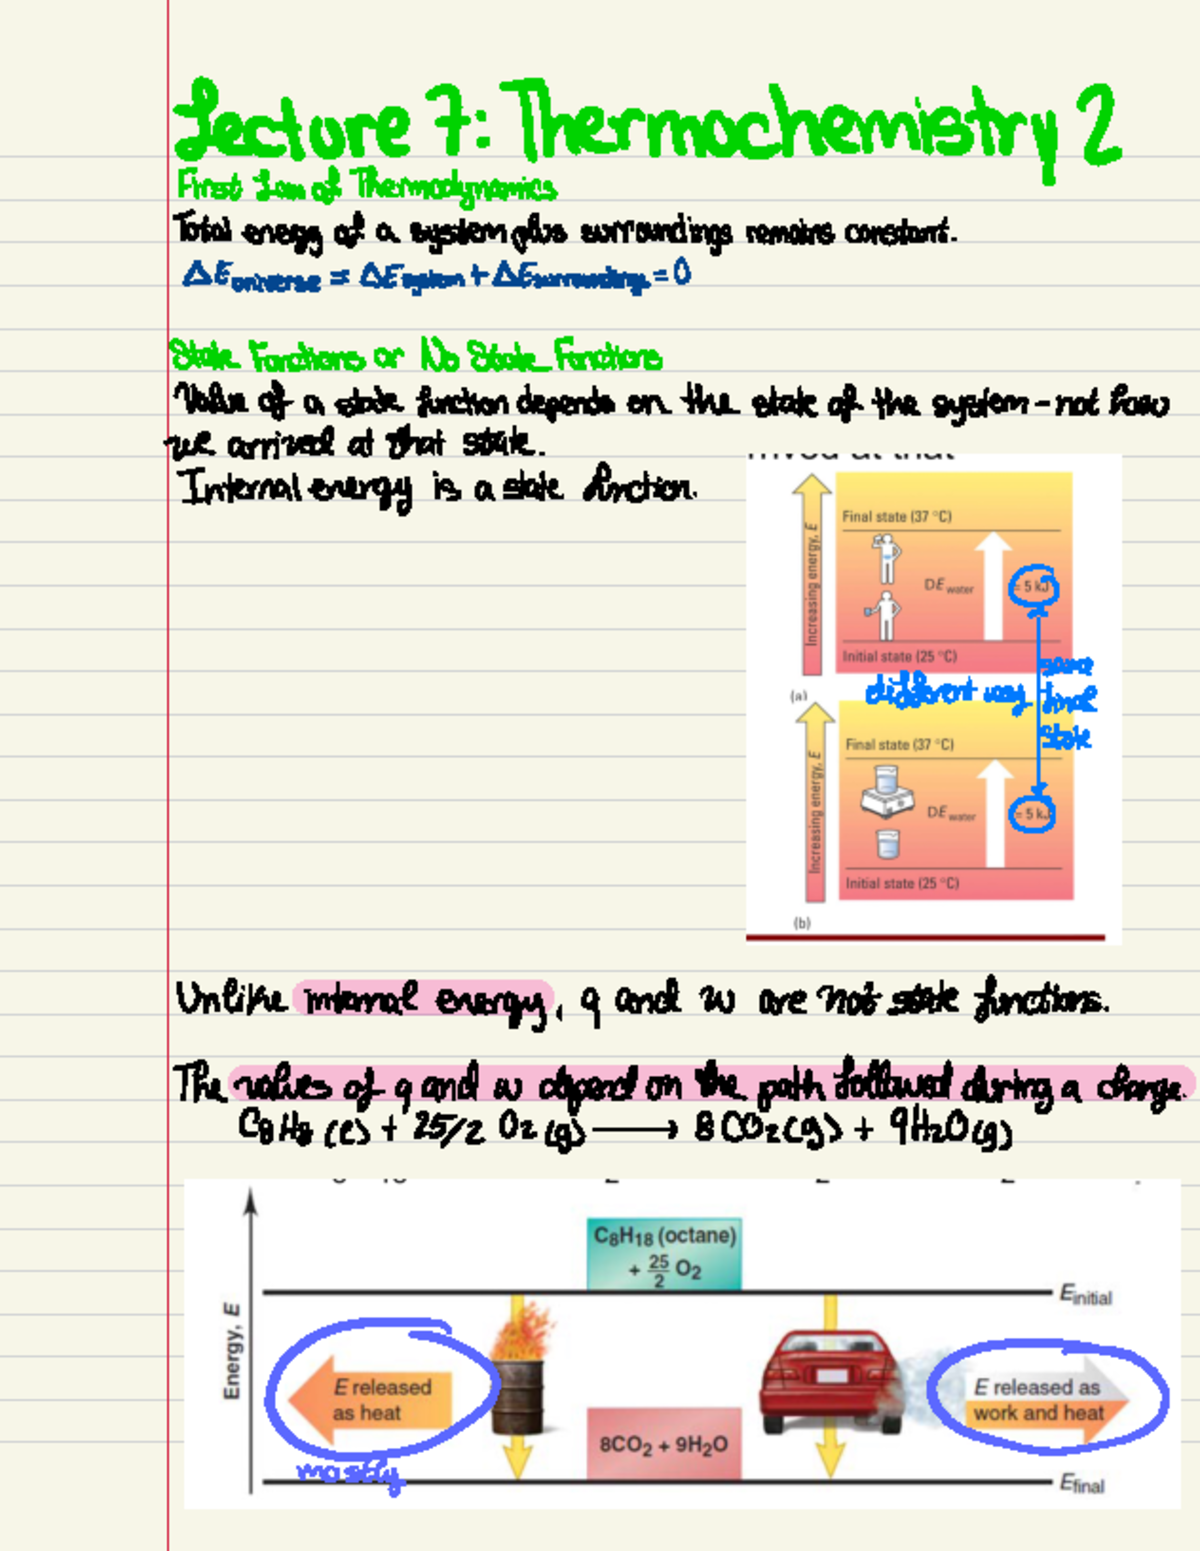 Lecture 7: Thermochemistry 2
First Law of Thermodynamics
Total energy of a system plus surroundings remains constant.
ΔEuniverse = ΔEsystem + ΔEsurroundings = 0
State Functions or No State Functions
Value of a state function depends on the state of the system - not how
we arrived at that state.
Internal energy is a state function.
Increasing energy, E
Final state (37 °C)
DE water
= 5 kJ
Initial state (25 °C)
(a)
different way
same
final
state
Increasing energy, E
Final state (37 °C)
DE water
= 5 kJ
Initial state (25 °C)
(b)
Unlike internal energy, q and w are not state functions.
The values of q and w depend on the path followed during a change.
C8H8 (l) + 25/2 O2 (g) → 8CO2 (g) + 9H2O (g)
Energy, E
C8H18 (octane)
+ 25/2 O2
Einitial
E released
as heat
mostly
E released as
work and heat
8CO2 + 9H2O
Efinal